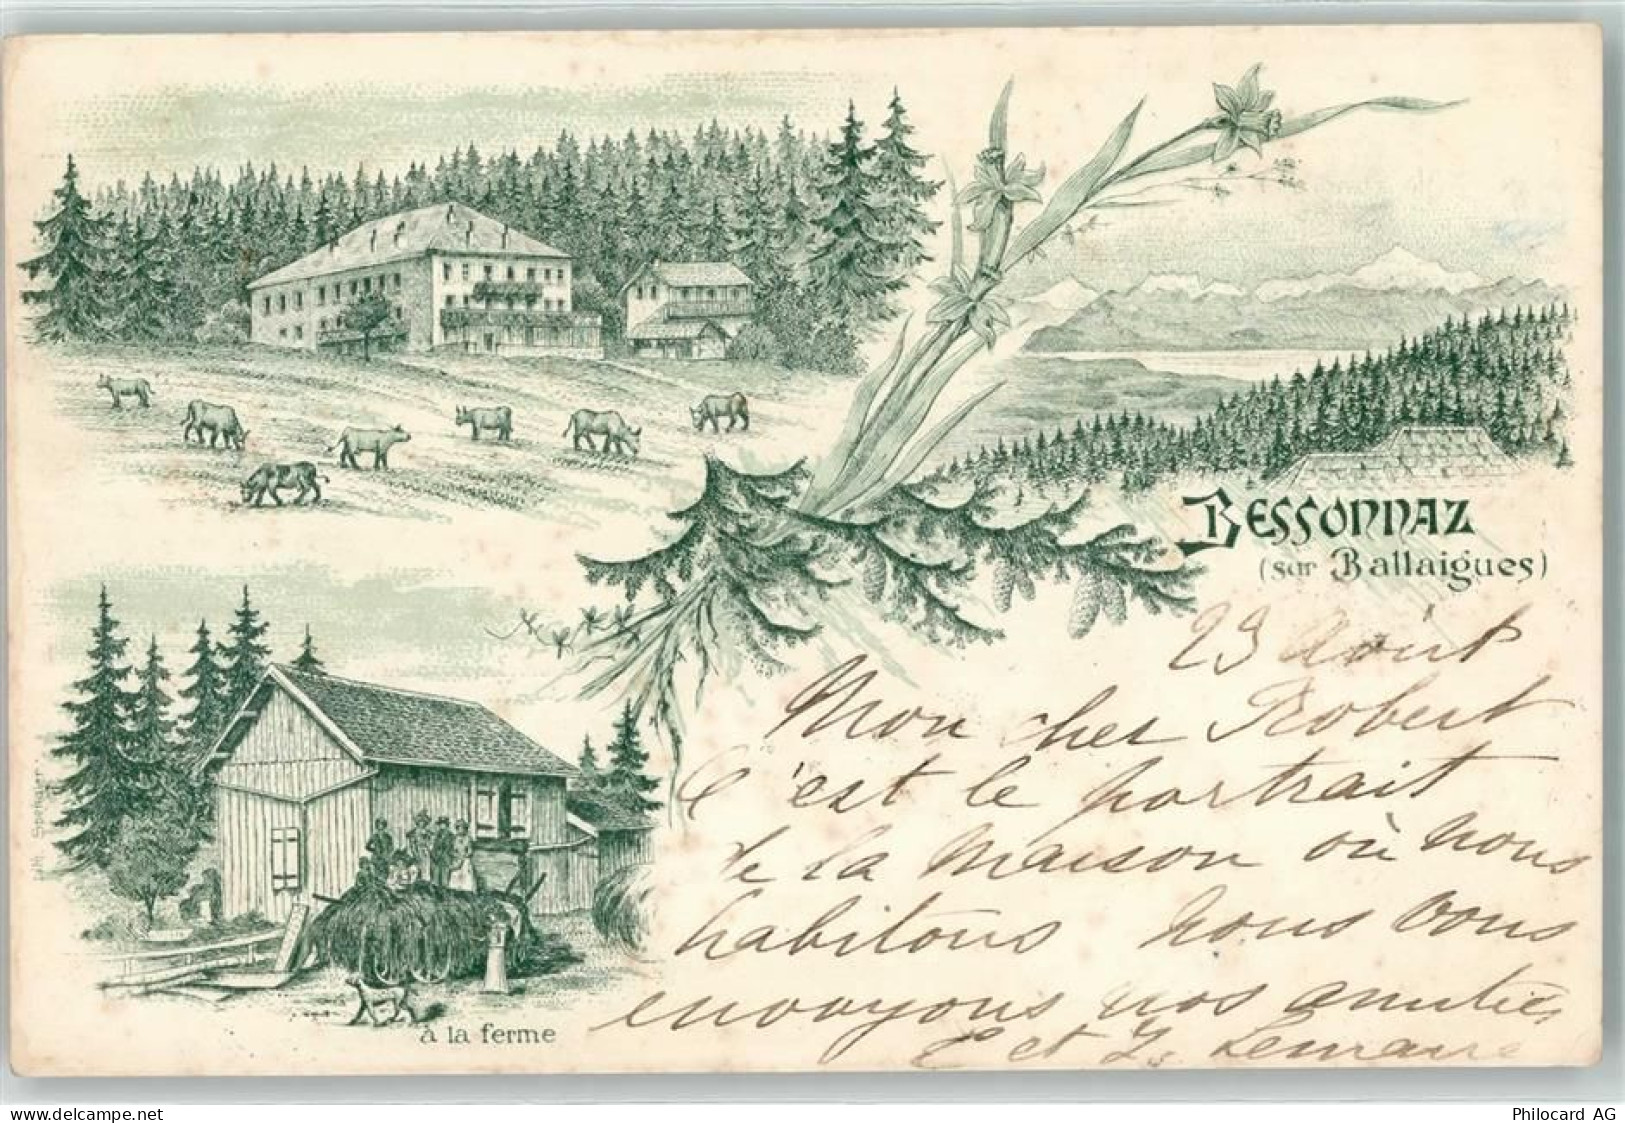 Bessonnaz
(sur Ballaigues)
23 Août
Mon cher Robert
C'est le portrait
de la maison où nous
habitons nous vous
envoyons nos amitiés
E et J. Lemaire
à la ferme
Lith. Sperker.
delcampe.net
Philocard AG